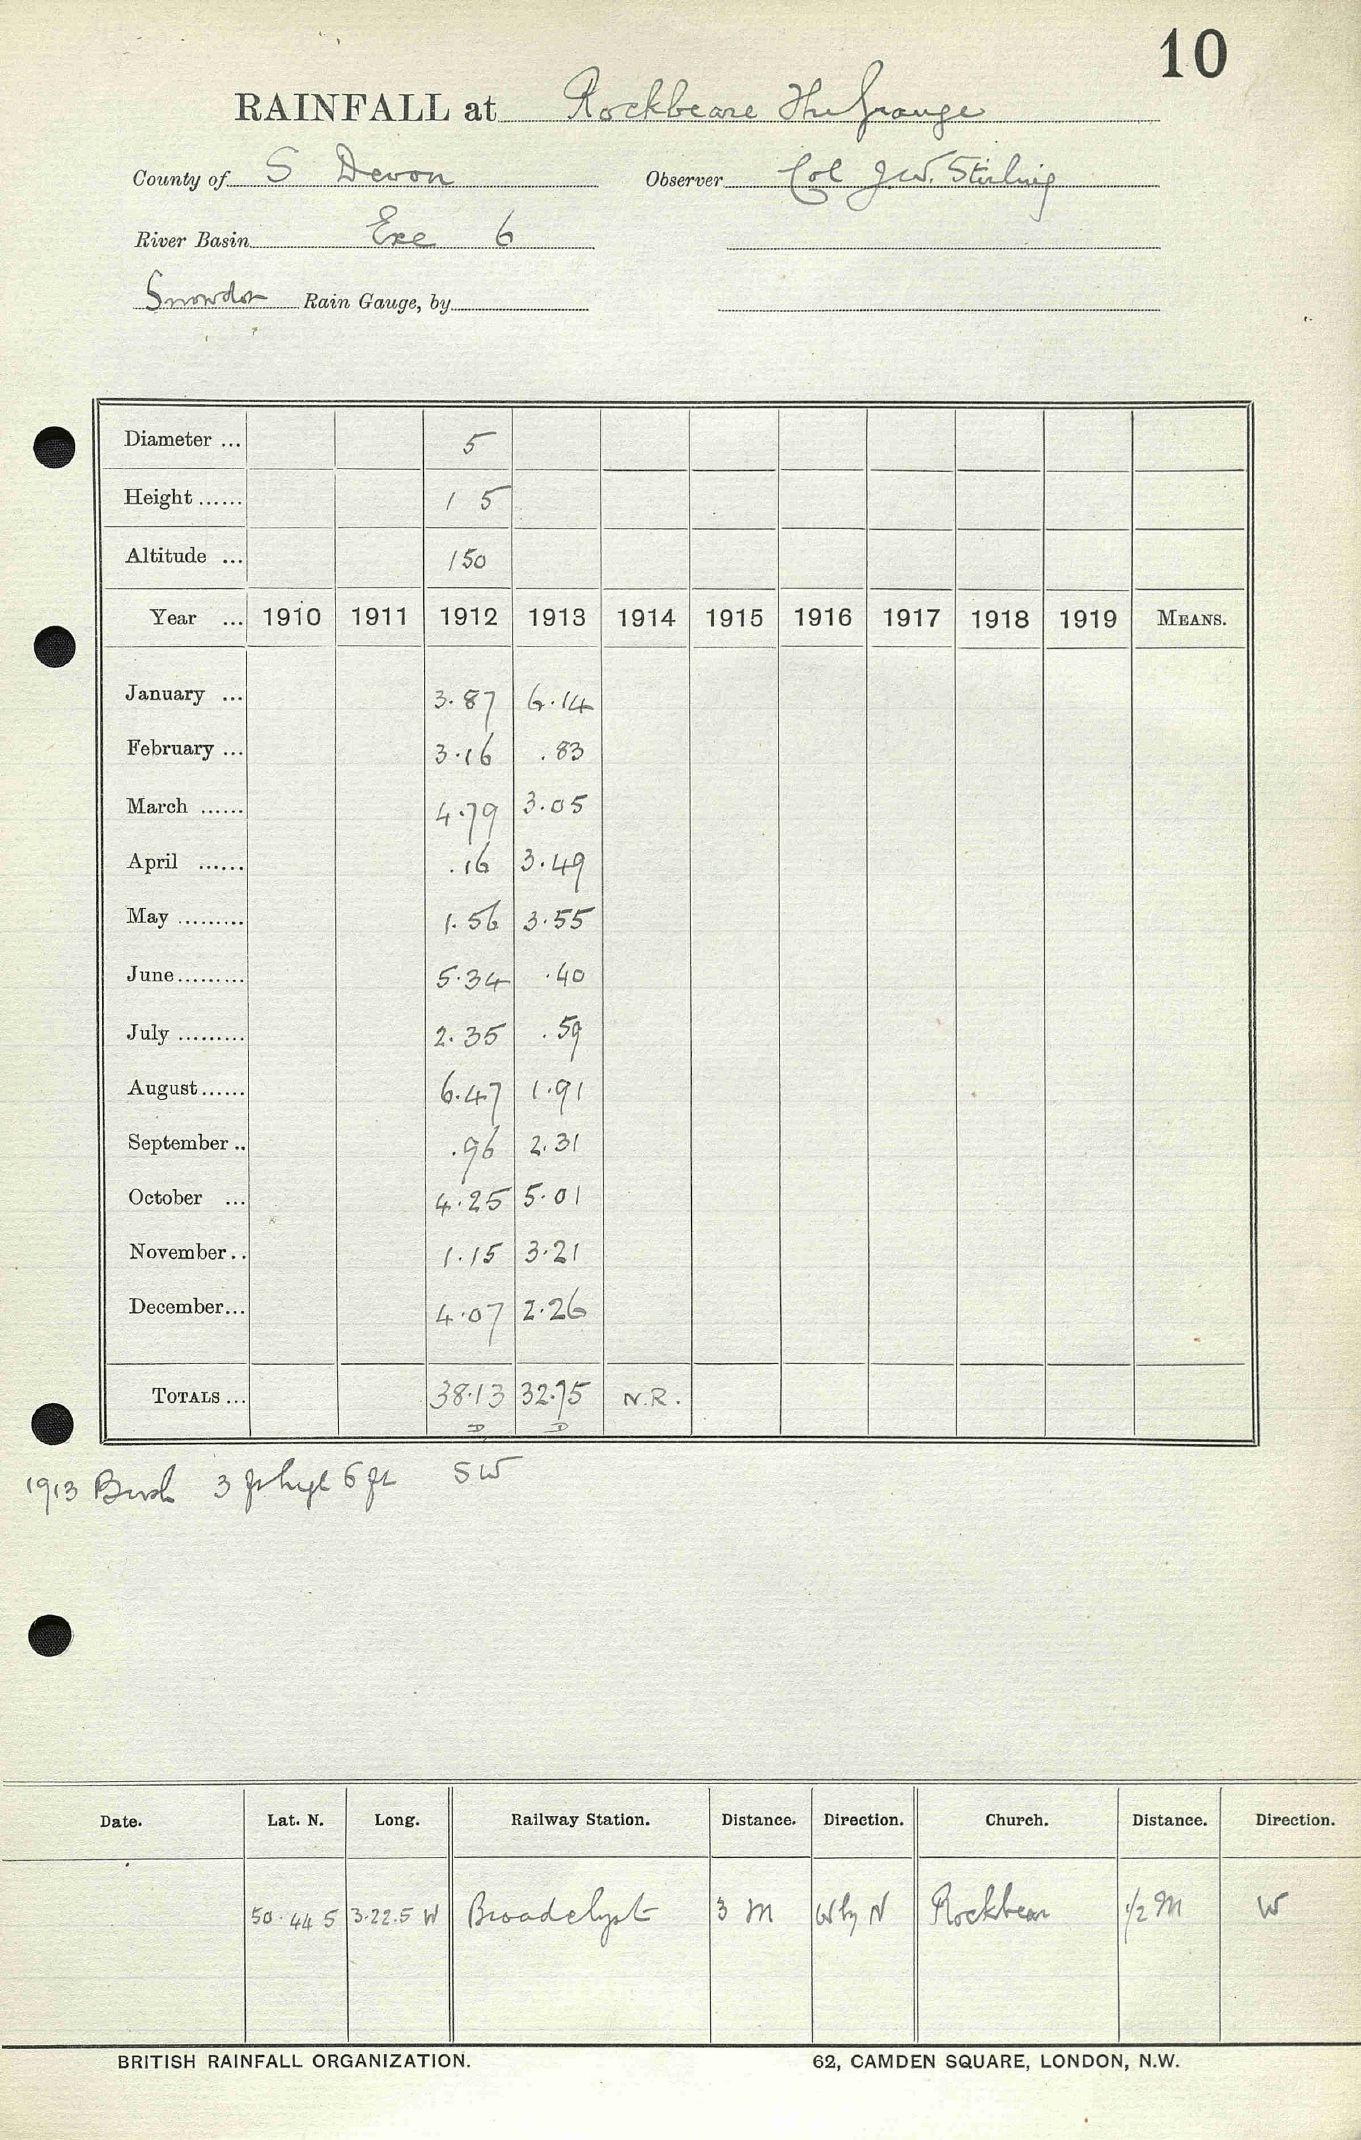 10
RAINFALL at Rockbeare The Grange
County of S Devon Observer Col J.W. Stirling
River Basin Exe 6
Snowdon Rain Gauge, by
Diameter ... 5
Height ...... 1 5
Altitude ... 150
Year ... 1910 1911 1912 1913 1914 1915 1916 1917 1918 1919 MEANS.
January ... 3.87 6.14
February ... 3.16 .83
March ...... 4.79 3.05
April ...... .16 3.49
May ......... 1.56 3.55
June......... 5.34 .40
July ......... 2.35 .59
August...... 6.47 1.91
September .. .96 2.31
October ... 4.25 5.01
November .. 1.15 3.21
December... 4.07 2.26
TOTALS ... 38.13 32.75 N.R.
D D
1913 Bush 3 ft high 6 ft SW
Date. Lat. N. Long. Railway Station. Distance. Direction. Church. Distance. Direction.
50.44 5 3.22.5 W Broadclyst 3 M W by N Rockbear 1/2 M W
BRITISH RAINFALL ORGANIZATION. 62, CAMDEN SQUARE, LONDON, N.W.